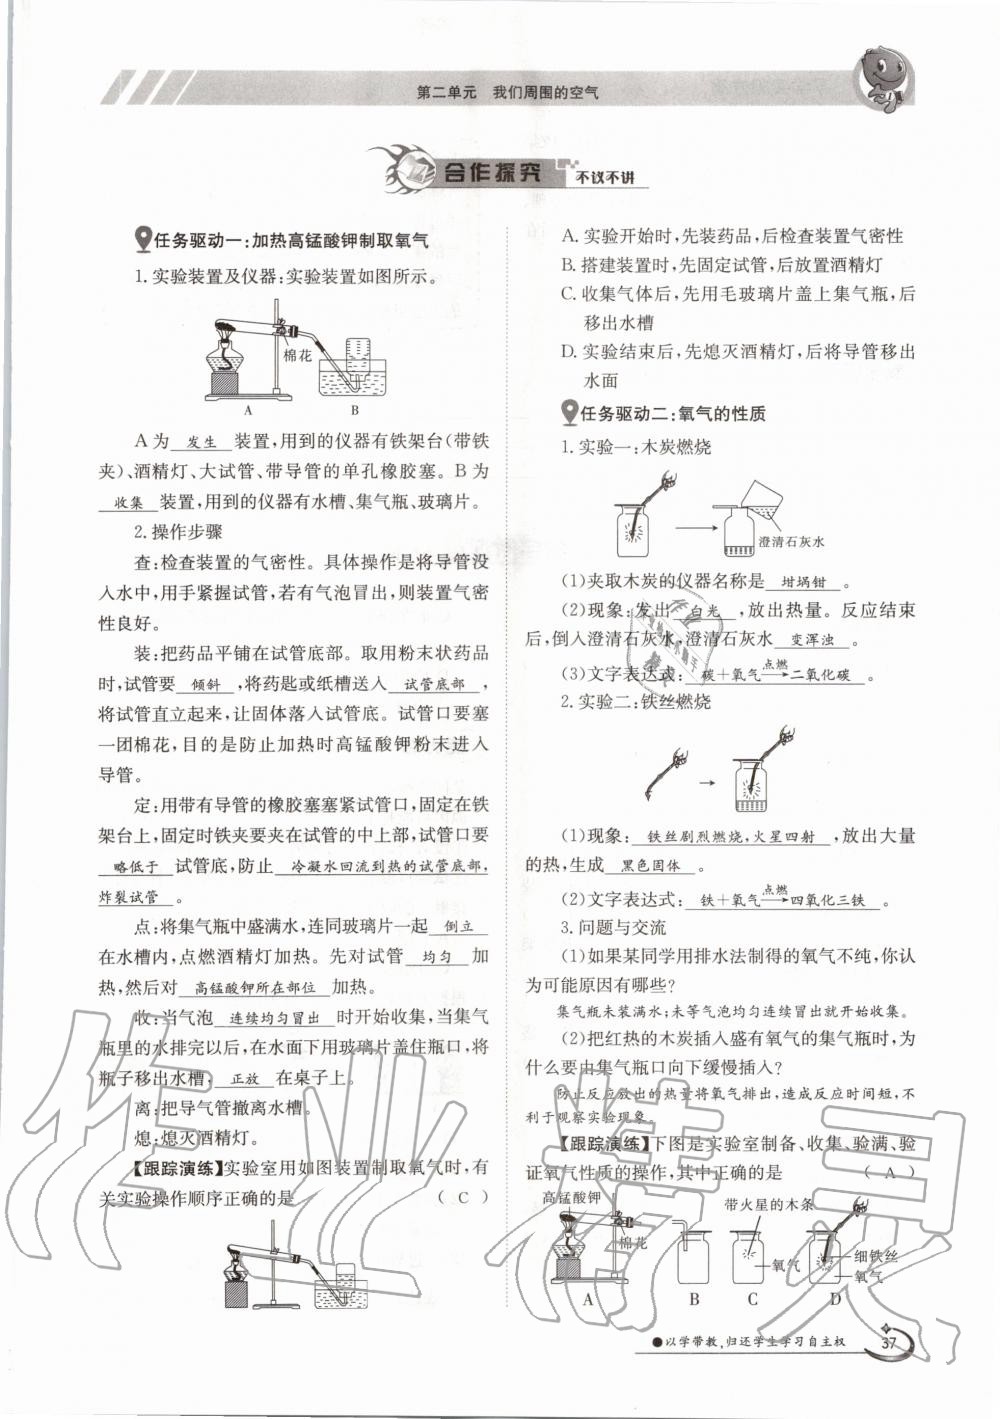 第二单元 我们周围的空气
合作探究 不议不讲
任务驱动一:加热高锰酸钾制取氧气
1. 实验装置及仪器:实验装置如图所示。
棉花
A B
A 为 发生 装置,用到的仪器有铁架台(带铁
夹)、酒精灯、大试管、带导管的单孔橡胶塞。B 为
收集 装置,用到的仪器有水槽、集气瓶、玻璃片。
2. 操作步骤
查:检查装置的气密性。具体操作是将导管没
入水中,用手紧握试管,若有气泡冒出,则装置气密
性良好。
装:把药品平铺在试管底部。取用粉末状药品
时,试管要 倾斜 ,将药匙或纸槽送入 试管底部 ,
将试管直立起来,让固体落入试管底。试管口要塞
一团棉花,目的是防止加热时高锰酸钾粉末进入
导管。
定:用带有导管的橡胶塞塞紧试管口,固定在铁
架台上,固定时铁夹要夹在试管的中上部,试管口要
略低于 试管底,防止 冷凝水回流到热的试管底部,
炸裂试管 。
点:将集气瓶中盛满水,连同玻璃片一起 倒立
在水槽内,点燃酒精灯加热。先对试管 均匀 加
热,然后对 高锰酸钾所在部位 加热。
收:当气泡 连续均匀冒出 时开始收集,当集气
瓶里的水排完以后,在水面下用玻璃片盖住瓶口,将
瓶子移出水槽, 正放 在桌子上。
离:把导气管撤离水槽。
熄:熄灭酒精灯。
【跟踪演练】实验室用如图装置制取氧气时,有
关实验操作顺序正确的是 ( C )
A. 实验开始时,先装药品,后检查装置气密性
B. 搭建装置时,先固定试管,后放置酒精灯
C. 收集气体后,先用毛玻璃片盖上集气瓶,后
移出水槽
D. 实验结束后,先熄灭酒精灯,后将导管移出
水面
任务驱动二:氧气的性质
1. 实验一:木炭燃烧
澄清石灰水
(1)夹取木炭的仪器名称是 坩埚钳 。
(2)现象:发出 白光 ,放出热量。反应结束
后,倒入澄清石灰水,澄清石灰水 变浑浊 。
(3)文字表达式: 碳+氧气 点燃→ 二氧化碳 。
2. 实验二:铁丝燃烧
(1)现象: 铁丝剧烈燃烧,火星四射 ,放出大量
的热,生成 黑色固体 。
(2)文字表达式: 铁+氧气 点燃→ 四氧化三铁 。
3. 问题与交流
(1)如果某同学用排水法制得的氧气不纯,你认
为可能原因有哪些?
集气瓶未装满水;未等气泡均匀连续冒出就开始收集。
(2)把红热的木炭插入盛有氧气的集气瓶时,为
什么要由集气瓶口向下缓慢插入?
防止反应放出的热量将氧气排出,造成反应时间短,不
利于观察实验现象。
【跟踪演练】下图是实验室制备、收集、验满、验
证氧气性质的操作,其中正确的是 ( A )
高锰酸钾
棉花
带火星的木条
氧气
细铁丝
氧气
A B C D
●以学带教,归还学生学习自主权
37
作业精灵